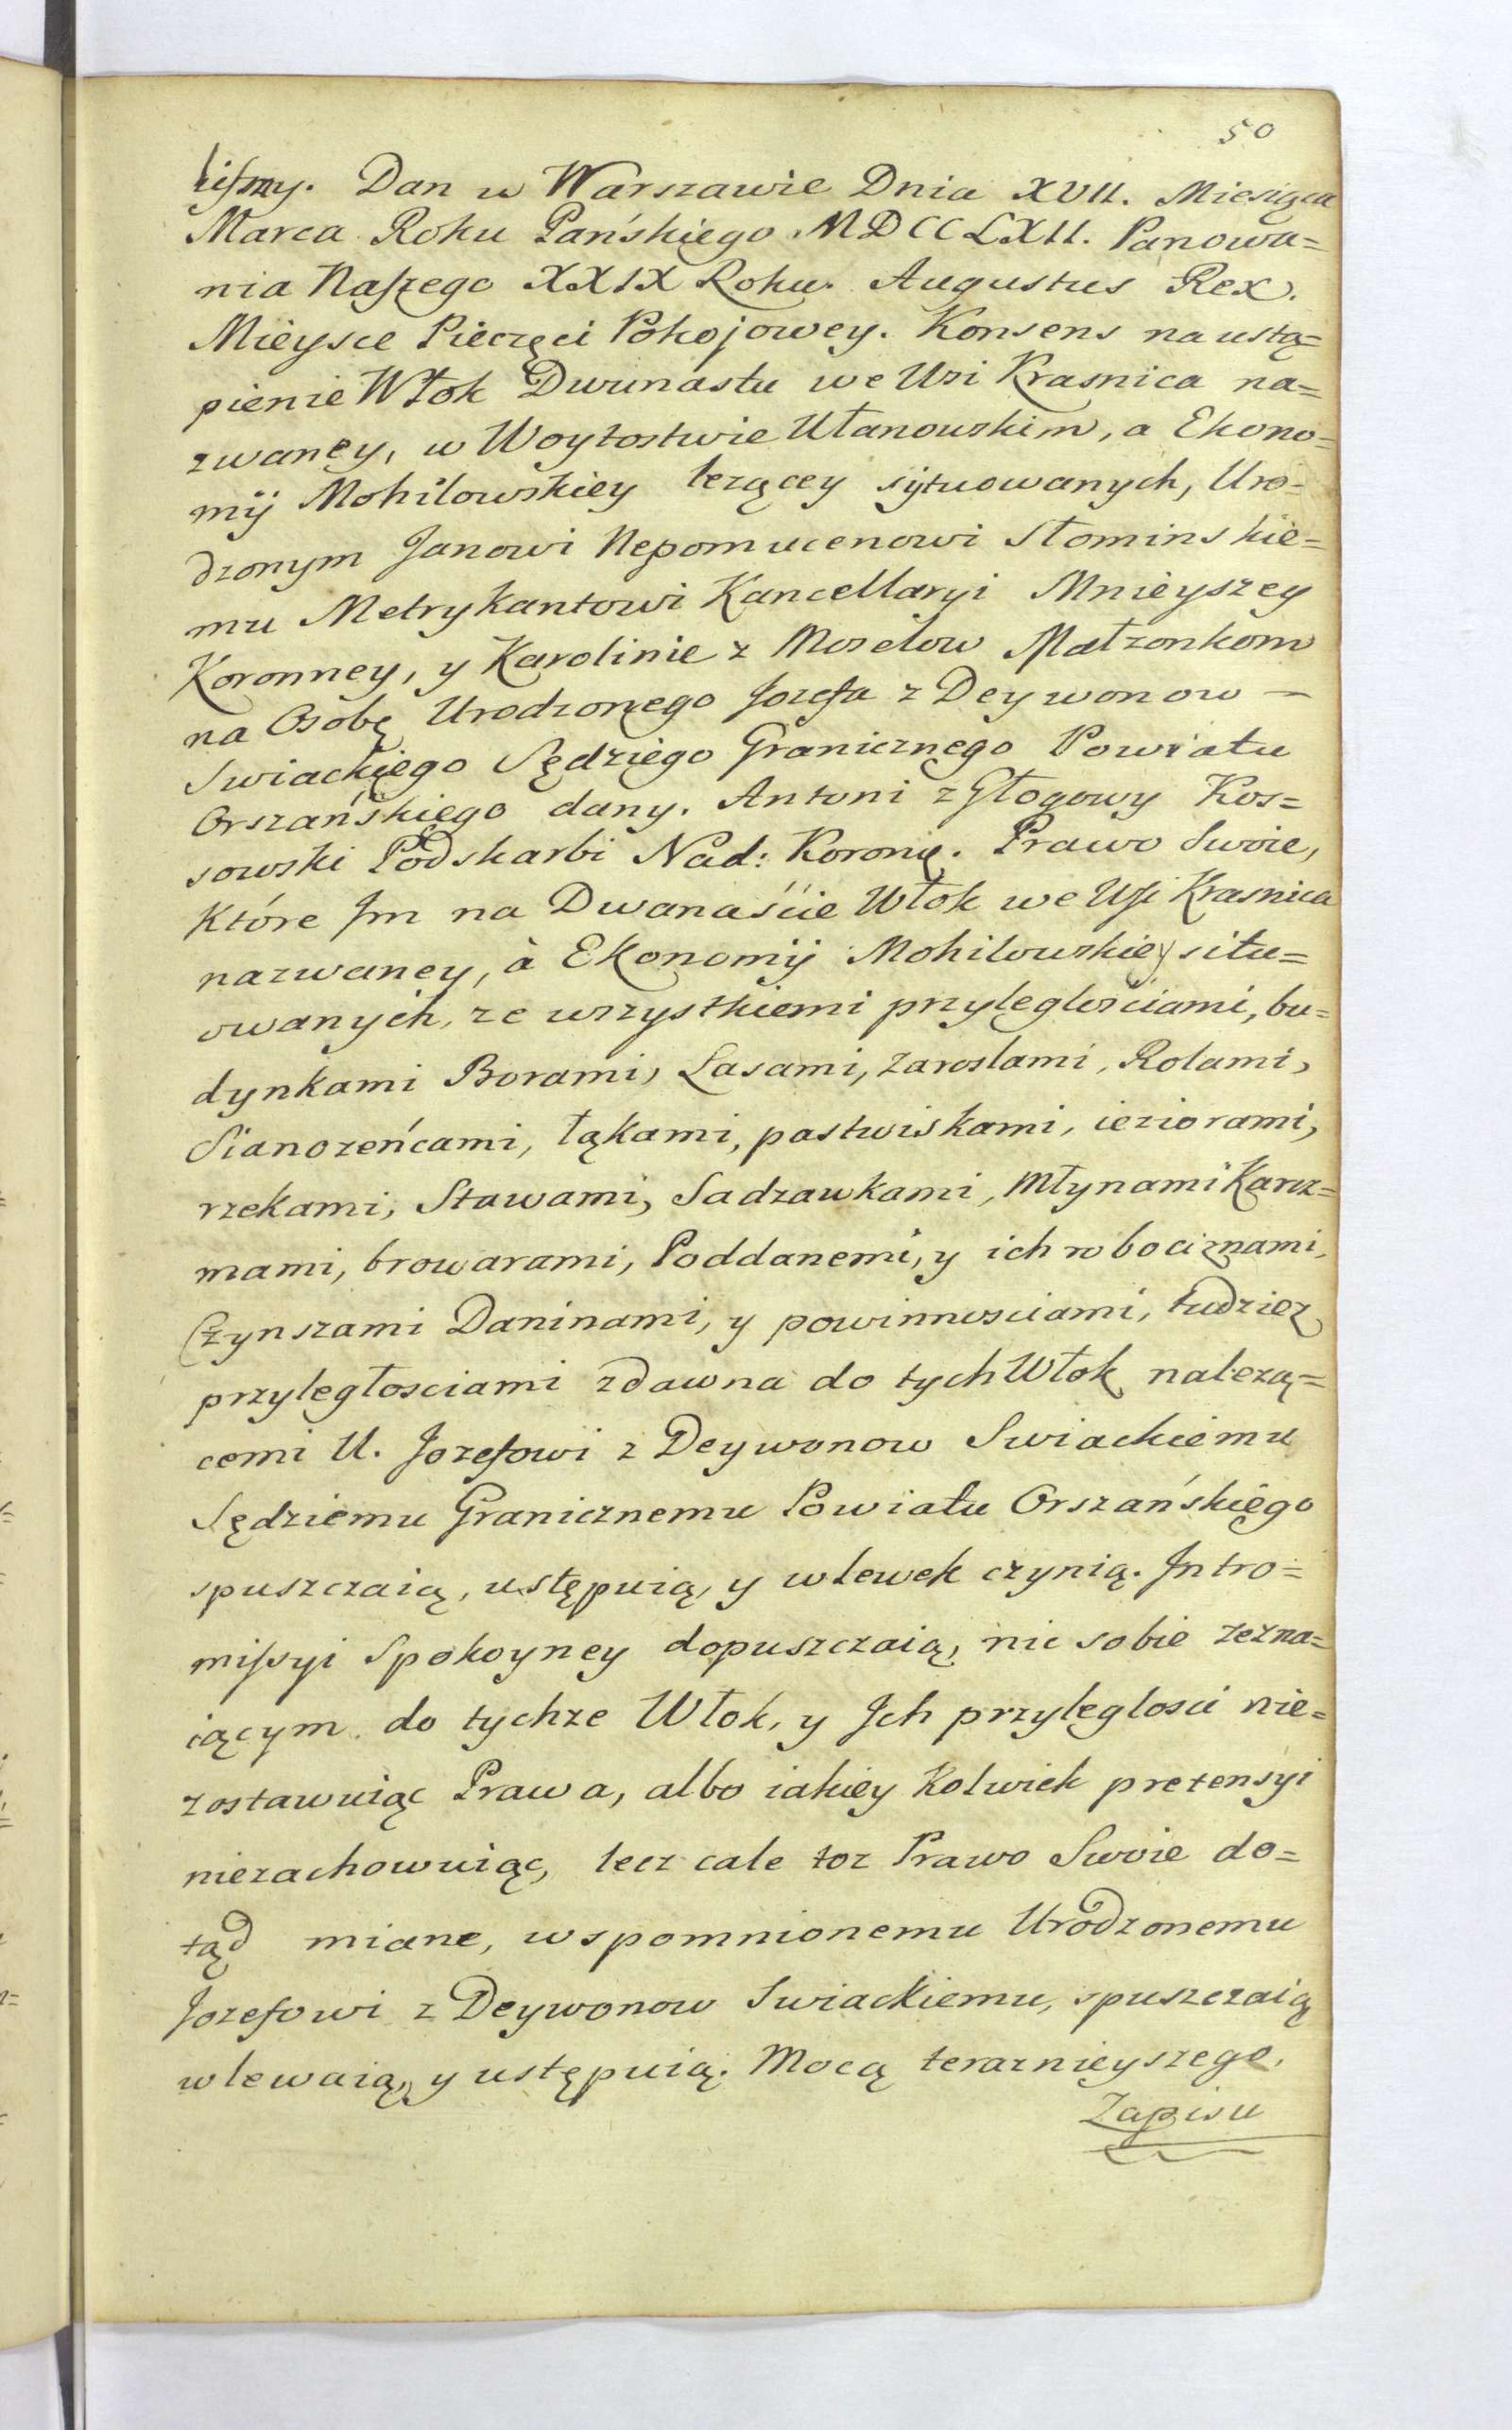 50
liſmy. Dan w Warszawie Dnia XVII. Miesiąca
Marca Roku Pańskiego MDCCLXII. Panowa=
nia Naſzego XXIX Roku. Augustus Rex.
Mieysce Pieczęci Pokojowey. Konsens na ustą=
pienie Włok Dwunastu we Wsi Krasnica na=
zwaney, w Woytostwie Ułanowskim, a Ekono=
mij Mohilowskiey lezącey sytuowanych, Uro=
dzonym Janowi Nepomucenowi Słominskie=
mu Metrykantowi Kancellaryi Mnieyszey
Koronney, y Karolinie z Mozelow Małzonkom
na Osobę Urodzonego Jozefa z Deywonow —
Swiackiego Sędziego Granicznego Powiatu
Orszańskiego dany. Antoni z Głogowy Kos=
sowski Podskarbi Nad: Koronię. Prawo Swoie,
Które Im na Dwanaście Włok we Wſi Krasnica
nazwaney, à Ekonomij Mohilowskiey situ=
owanych, ze wszystkiemi przyległosciami, bu=
dynkami Borami, Lasami, Zaroslami, Rolami,
Sianozeńcami, łąkami, pastwiskami, ieziorami,
rzekami, Stawami, Sadzawkami, Młynami Karcz=
mami, browarami, Poddanemi, y ich robociznami,
Czynszami Daninami, y powinnosciami, tudziez
przyległosciami zdawna do tych Włok nalezą=
cemi U. Jozefowi z Deywonow Swiackiemu
Sędziemu Granicznemu Powiatu Orszańskiego
spuszczaią, ustępuią, y wlewek czynią. Intro=
miſsyi Spokoyney dopuszczaią, nic sobie zezna=
iącym do tychze Włok, y Ich przyległosci nie=
zostawuiąc Prawa, albo iakiey Kolwiek pretensyi
niezachowuiąc, lecz cale toz Prawo Swoie do=
tąd miane, wspomnionemu Urodzonemu
Jozefowi z Deywonow Swiackiemu, spuszczaią
wlewaią, y ustępuią. Mocą teraznieyszego.
Zapisu